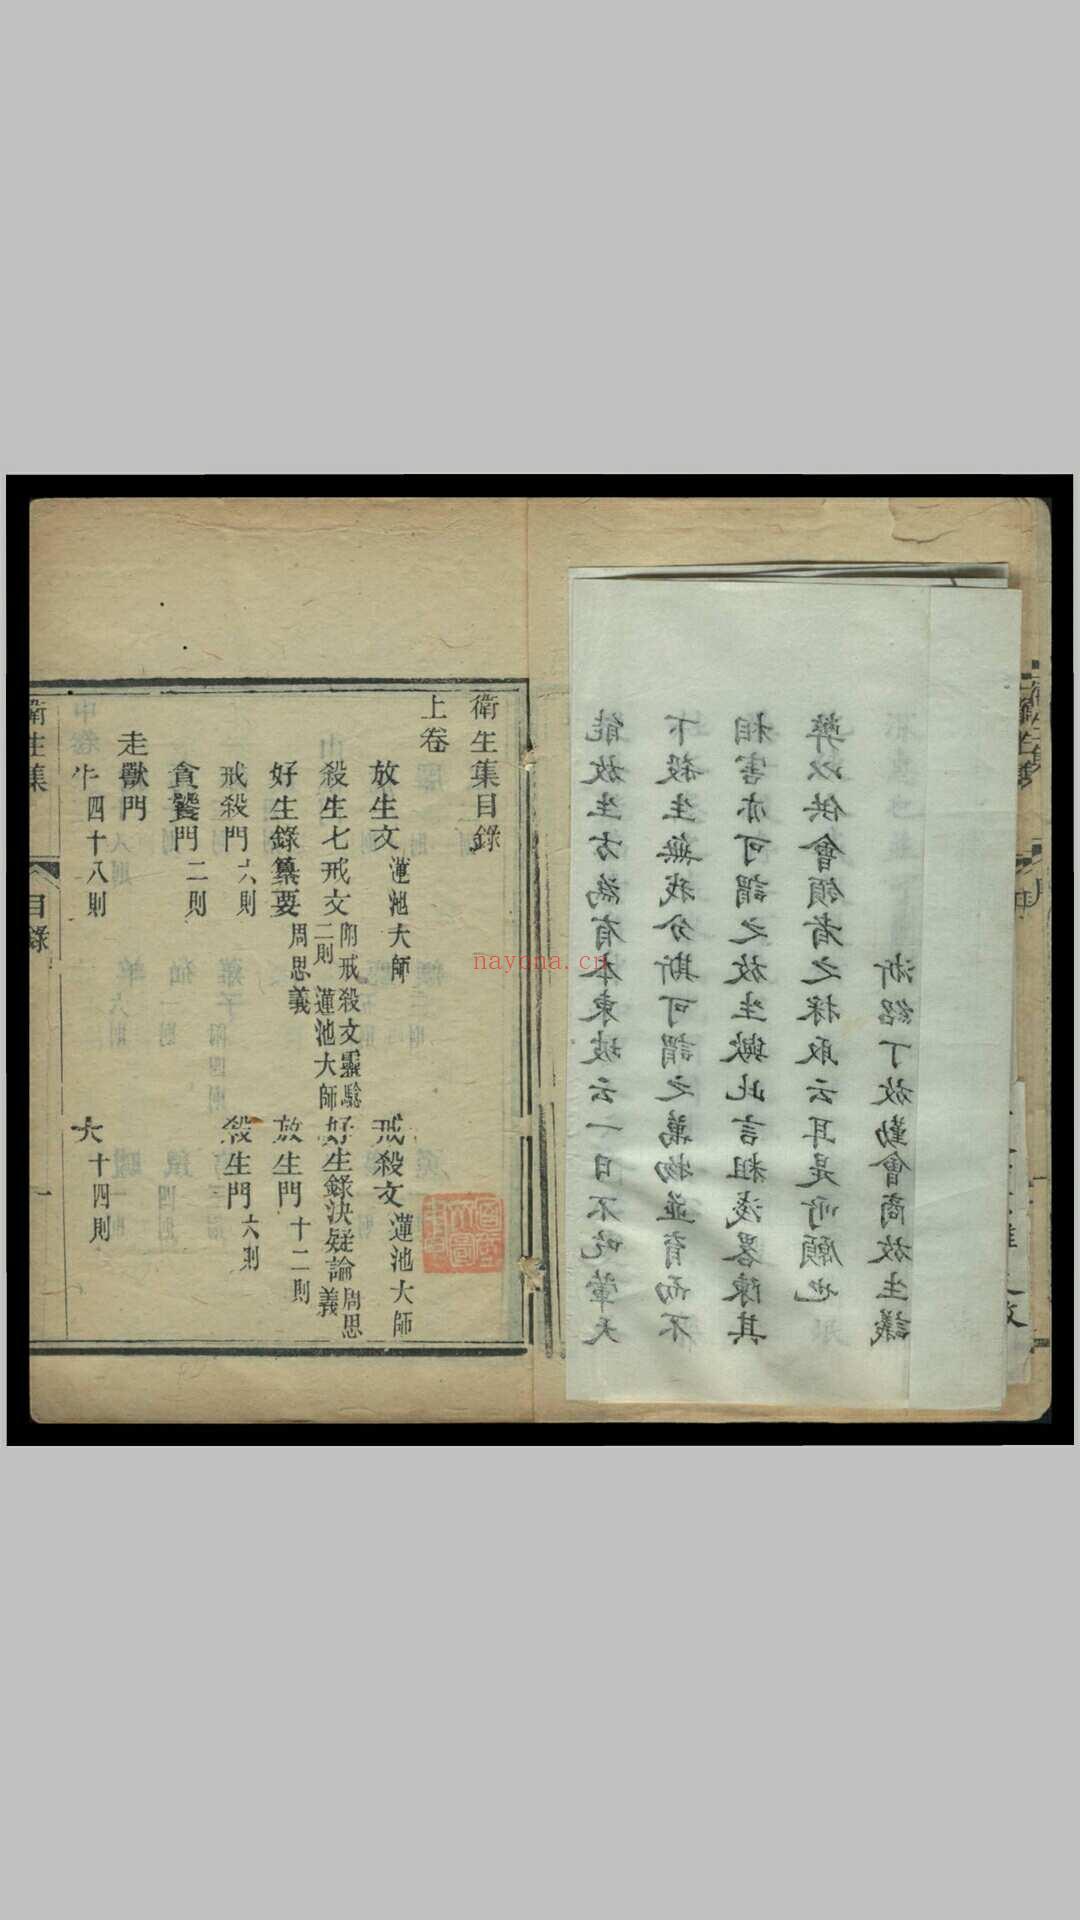 能放生方為有本東坡云一日不吃葷天
下殺生無我分斯可謂之萬物並育而不
相害亦可謂之放生歟此言粗淺畧陳其
弊以供會領者之採取云耳是所願也
浙紹丁放勤會商放生議
衛生集目錄
上卷
放生文 蓮池大師 戒殺文 蓮池大師
殺生七戒文 附戒殺文靈驗二則 蓮池大師 好生錄決疑論 周思義
好生錄纂要 周思義 放生門 十二則
戒殺門 六則 殺生門 六則
貪饕門 二則
走獸門
牛 四十八則 犬 十四則
衛生集 目錄 一
nayona.cn